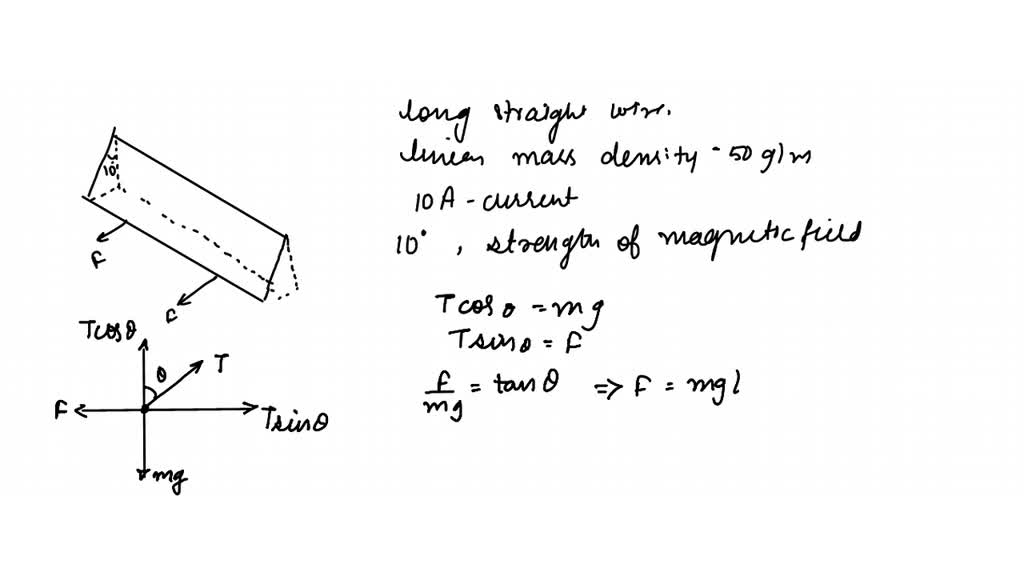 long straight wire.
linear mass density - 50 g/m
10 A - current
10° , strength of magnetic field
10°
F
F
Tcosθ = mg
Tsinθ = F
F/mg = tanθ => F = mgl
Tcosθ
θ
T
F
Tsinθ
mg